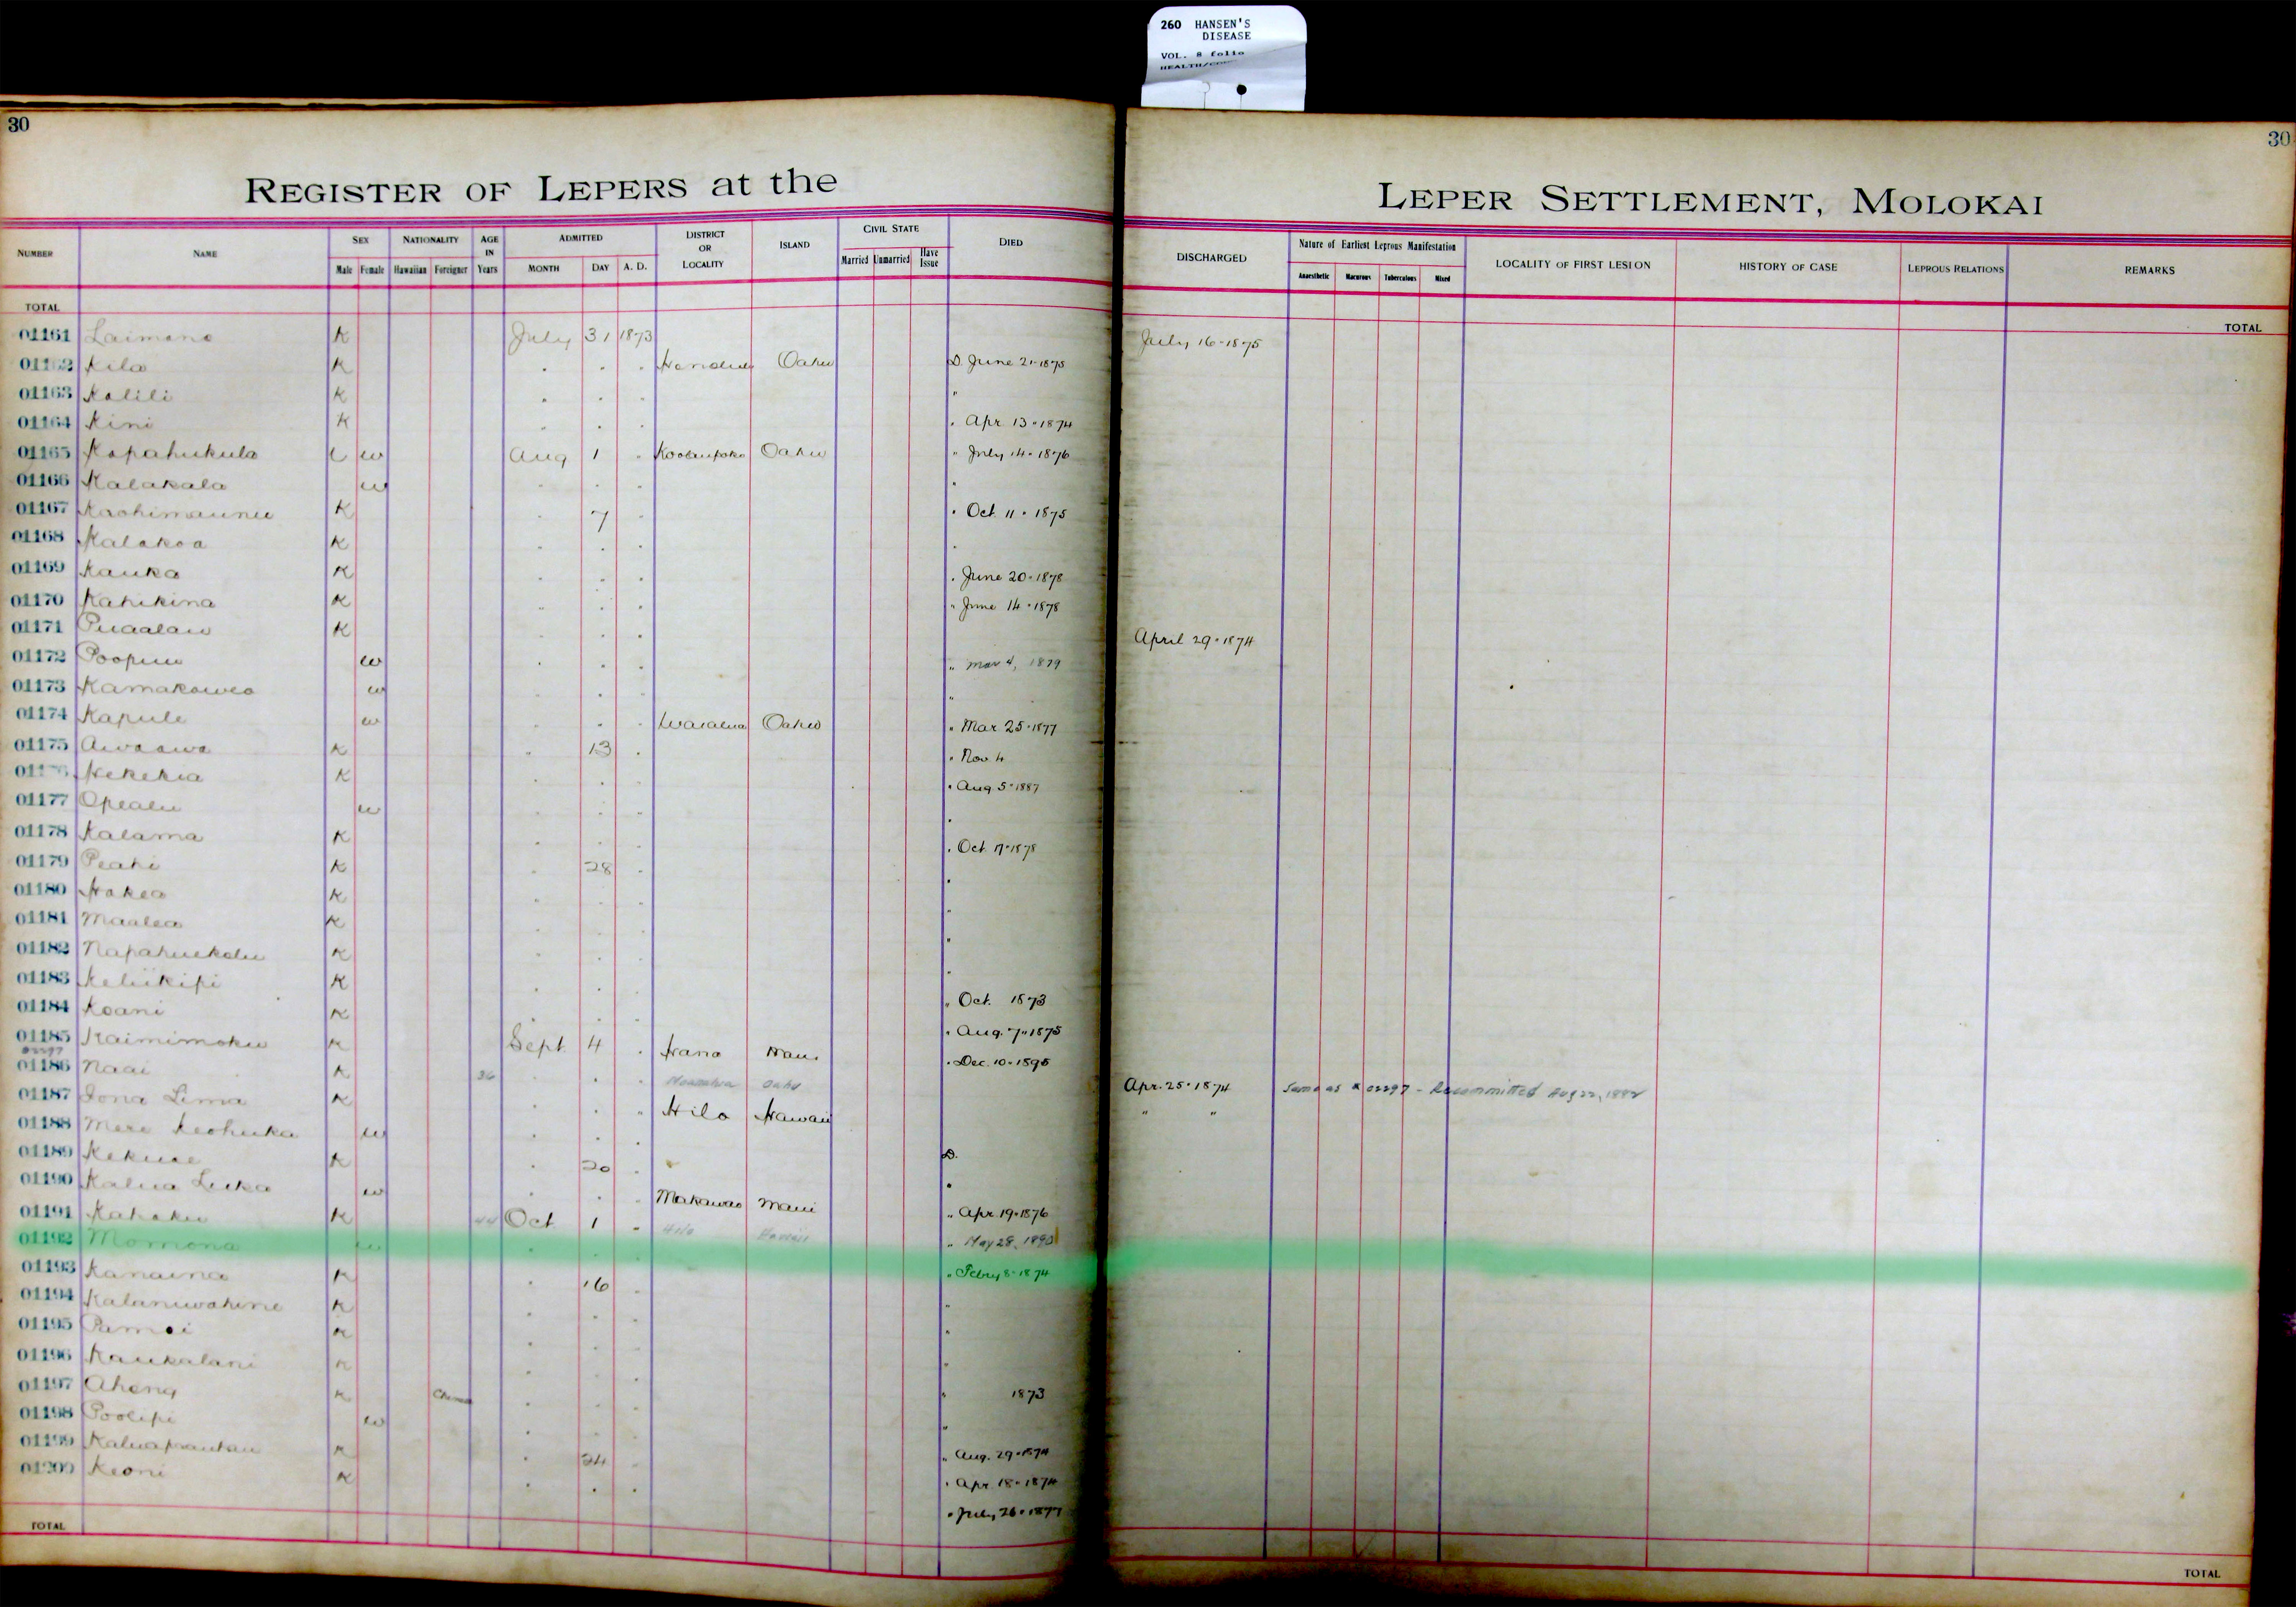 260 HANSEN'S
DISEASE
VOL. 8 folio
30
30
REGISTER OF LEPERS at the
LEPER SETTLEMENT, MOLOKAI
NUMBER NAME SEX Male Female NATIONALITY Hawaiian Foreigner AGE IN Years ADMITTED MONTH DAY A. D. DISTRICT OR LOCALITY ISLAND CIVIL STATE Married Unmarried Have Issue DIED
DISCHARGED Nature of Earliest Leprous Manifestation Anaesthetic Macurous Tuberculous Mixed LOCALITY OF FIRST LESION HISTORY OF CASE LEPROUS RELATIONS REMARKS
TOTAL
TOTAL
01161 Laimana K July 31 1873 July 16-1875
01162 Kila K . . . Honolulu Oahu D. June 21-1875
01163 Kalili K . . . "
01164 Kini K . . . . Apr. 13-1874
01165 Kapahukula w Aug 1 . Koolaupoko Oahu " July 14-1876
01166 Kalakala w . . . .
01167 K . 7 . . Oct. 11-1875
01168 Kalakoa K . . . .
01169 Kauka K . . . . June 20-1878
01170 Kahikina K . . . " June 14-1878
01171 Puaalau K . . . April 29-1874
01172 w . . . " Mar 4, 1879
01173 Kamakawea w . . . "
01174 Kapule w . . . Waialua Oahu " Mar. 25-1877
01175 Awaawa K . 13 . . Nov. 4
Hekekia K . . . . Aug 5-1887
01177 Opealu w . . . .
01178 Kalama K . . . . Oct. 17-1878
01179 Peahi K . 28 . .
01180 Hakea K . . . .
01181 Maalea K . . . .
01182 Napahuekolu K . . . .
01183 Keliikipi K . . . " Oct. 1873
01184 Koani K . . . . Aug. 7-1875
01185 Kaimimoku K Sept. 4 . Hana Maui . Dec. 10-1895
01186 Naai K 36 . . . Oahu Apr. 25-1874 Same as # 02297 - Recommitted Aug 22, 1882
01187 Iona Lima K . . " Hilo Hawaii " "
01188 Mere Keohuka w . . . D.
01189 Kekuae K . 20 . .
01190 Kalua Luka w . . . Makawao Maui " Apr. 19-1876
01191 Kahaku K 44 Oct 1 " Hilo Hawaii " May 28, 1890
01192 Momona w . . . . Febry 8-1874
01193 Kanaina K . 16 . "
01194 Kalaniwahine K . . . "
01195 K . . . "
01196 Kaukalani K . . . "
01197 Aheng K . . . " 1873
01198 Poolipi w . . . "
01199 K . 24 . " Aug. 29-1874
01200 Keoni K . . . . Apr. 18-1874
. July 26-1877
TOTAL
TOTAL